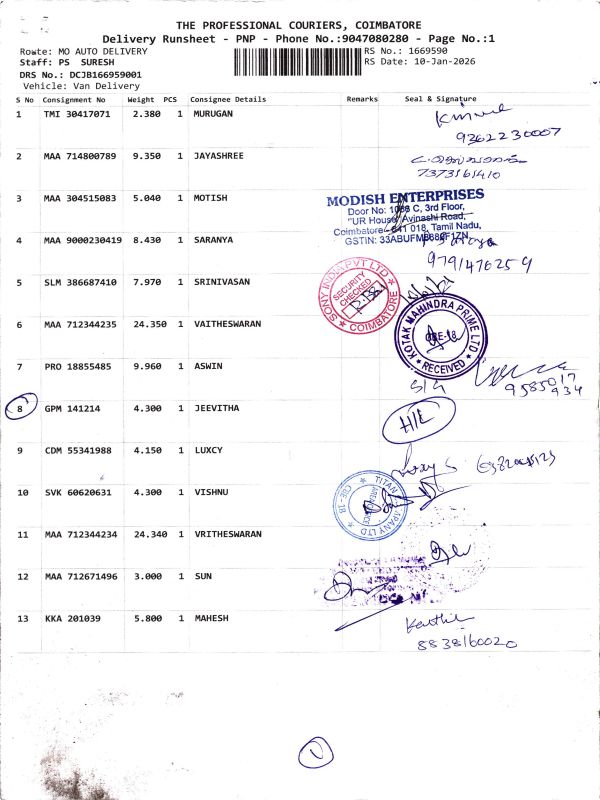 THE PROFESSIONAL COURIERS, COIMBATORE
Delivery Runsheet - PNP - Phone No.:9047080280 - Page No.:1
Route: MO AUTO DELIVERY RS No.: 1669590
Staff: PS SURESH RS Date: 10-Jan-2026
DRS No.: DCJB166959001
Vehicle: Van Delivery
S No Consignment No Weight PCS Consignee Details Remarks Seal & Signature
1 TMI 30417071 2.380 1 MURUGAN
9362230007
2 MAA 714800789 9.350 1 JAYASHREE
7373161410
3 MAA 304515083 5.040 1 MOTISH
MODISH ENTERPRISES
Door No: 1056 C, 3rd Floor,
"UR House" Avinashi Road,
Coimbatore - 641 018, Tamil Nadu,
GSTIN:
4 MAA 9000230419 8.430 1 SARANYA
9791476259
5 SLM 386687410 7.970 1 SRINIVASAN
SONY INDIA PVT LTD
SECURITY CHECKED
COIMBATORE
6 MAA 712344235 24.350 1 VAITHESWARAN
KOTAK MAHINDRA PRIME LTD
CBE-18
RECEIVED
7 PRO 18855485 9.960 1 ASWIN
9585017
934
8 GPM 141214 4.300 1 JEEVITHA
H/L
9 CDM 55341988 4.150 1 LUXCY
10 SVK 60620631 4.300 1 VISHNU
TITAN COMPANY LTD
CBE-18
11 MAA 712344234 24.340 1 VRITHESWARAN
12 MAA 712671496 3.000 1 SUN
13 KKA 201039 5.800 1 MAHESH
Karthik
8838160020
1